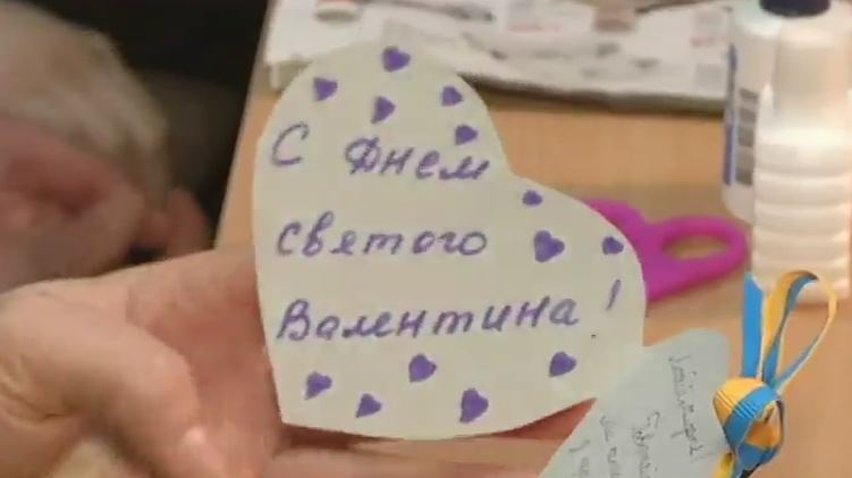 С Днем
святого
Валентина!